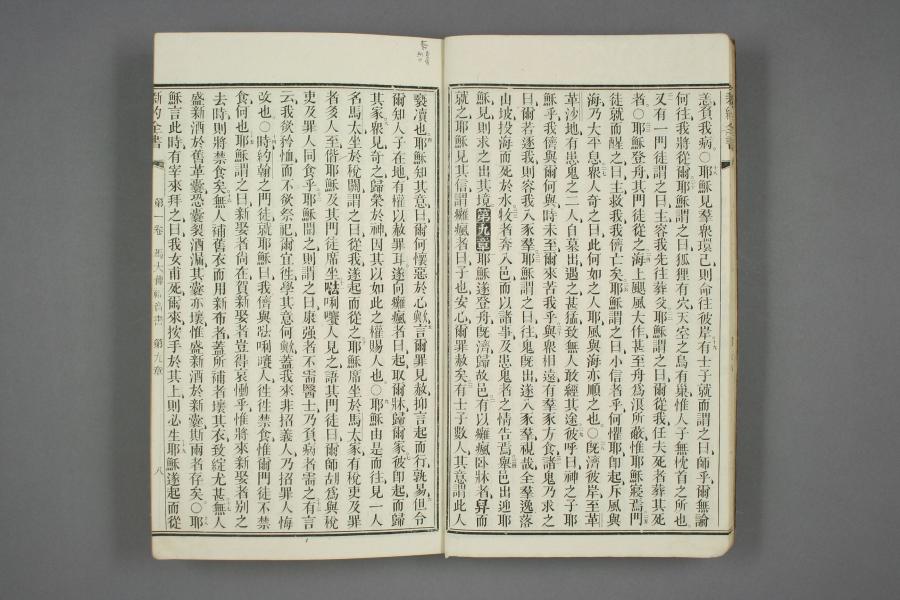 恙負我病〇耶穌見羣衆環己則命往彼岸有士子就而謂之曰師乎爾無論
何往我將從爾耶穌謂之曰狐狸有穴天空之鳥有巢惟人子無枕首之所也
又有一門徒謂之曰主容我先往葬父耶穌謂之曰爾從我任夫死者葬其死
者〇耶穌登舟其門徒從之海上颶風大作甚至舟爲浪所蔽惟耶穌寢焉門
徒就而醒之曰主救我我儕亡矣耶穌謂之曰小信者乎何懼耶卽起斥風與
海乃大平息衆人奇之曰此何如之人耶風與海亦順之也〇旣濟彼岸至革
革沙地有患鬼之二人自墓出遇之甚猛致無人敢經其途彼呼曰神之子耶
穌乎我儕與爾何與時未至爾來苦我乎與衆相遠有羣豕方食諸鬼乃求之
曰爾若逐我則容我入豕羣耶穌謂之曰往鬼旣出遂入豕羣視哉全羣逸落
山坡投海而死於水牧者奔入邑而以諸事及患鬼者之情告焉舉邑出迎耶
穌見則求之出其境第九章耶穌遂登舟旣濟歸故邑有以癱瘋臥牀者舁而
就之耶穌見其信謂癱瘋者曰子也安心爾罪赦矣有士子數人其意謂此人
褻瀆也耶穌知其意曰爾何懷惡於心歟言爾罪見赦抑言起而行孰易但令
爾知人子在地有權以赦罪耳遂向癱瘋者曰起取爾牀歸爾家彼卽起而歸
其家衆見奇之歸榮於神因其以如此之權賜人也〇耶穌由是而往見一人
名馬太坐於稅關謂之曰從我遂起而從之耶穌席坐於馬太家有稅吏及罪
者多人至偕耶穌及其門徒席坐𠵽唎㘔人見之語其門徒曰爾師胡爲與稅
吏及罪人同食乎耶穌聞之則謂之曰康强者不需醫士乃負病者需之有言
云我欲矜恤而不欲祭祀爾宜往學其意何歟蓋我來非招義人乃招罪人悔
改也〇時約翰之門徒就耶穌曰我儕與𠵽唎㘔人往往禁食惟爾門徒不禁
食何也耶穌謂之曰新娶者尙在賀新娶者豈得哀慟乎惟將來新娶者別之
去時則將禁食矣無人補舊衣而用新布者蓋所補者壞其衣致綻尤甚無人
盛新酒於舊革囊恐囊裂酒漏其囊亦壞惟盛新酒於新囊斯兩者存矣〇耶
穌言此時有宰來拜之曰我女甫死爾來按手於其上則必生耶穌遂起而從
新約全書
第一卷 馬太傳福音書 第九章
八